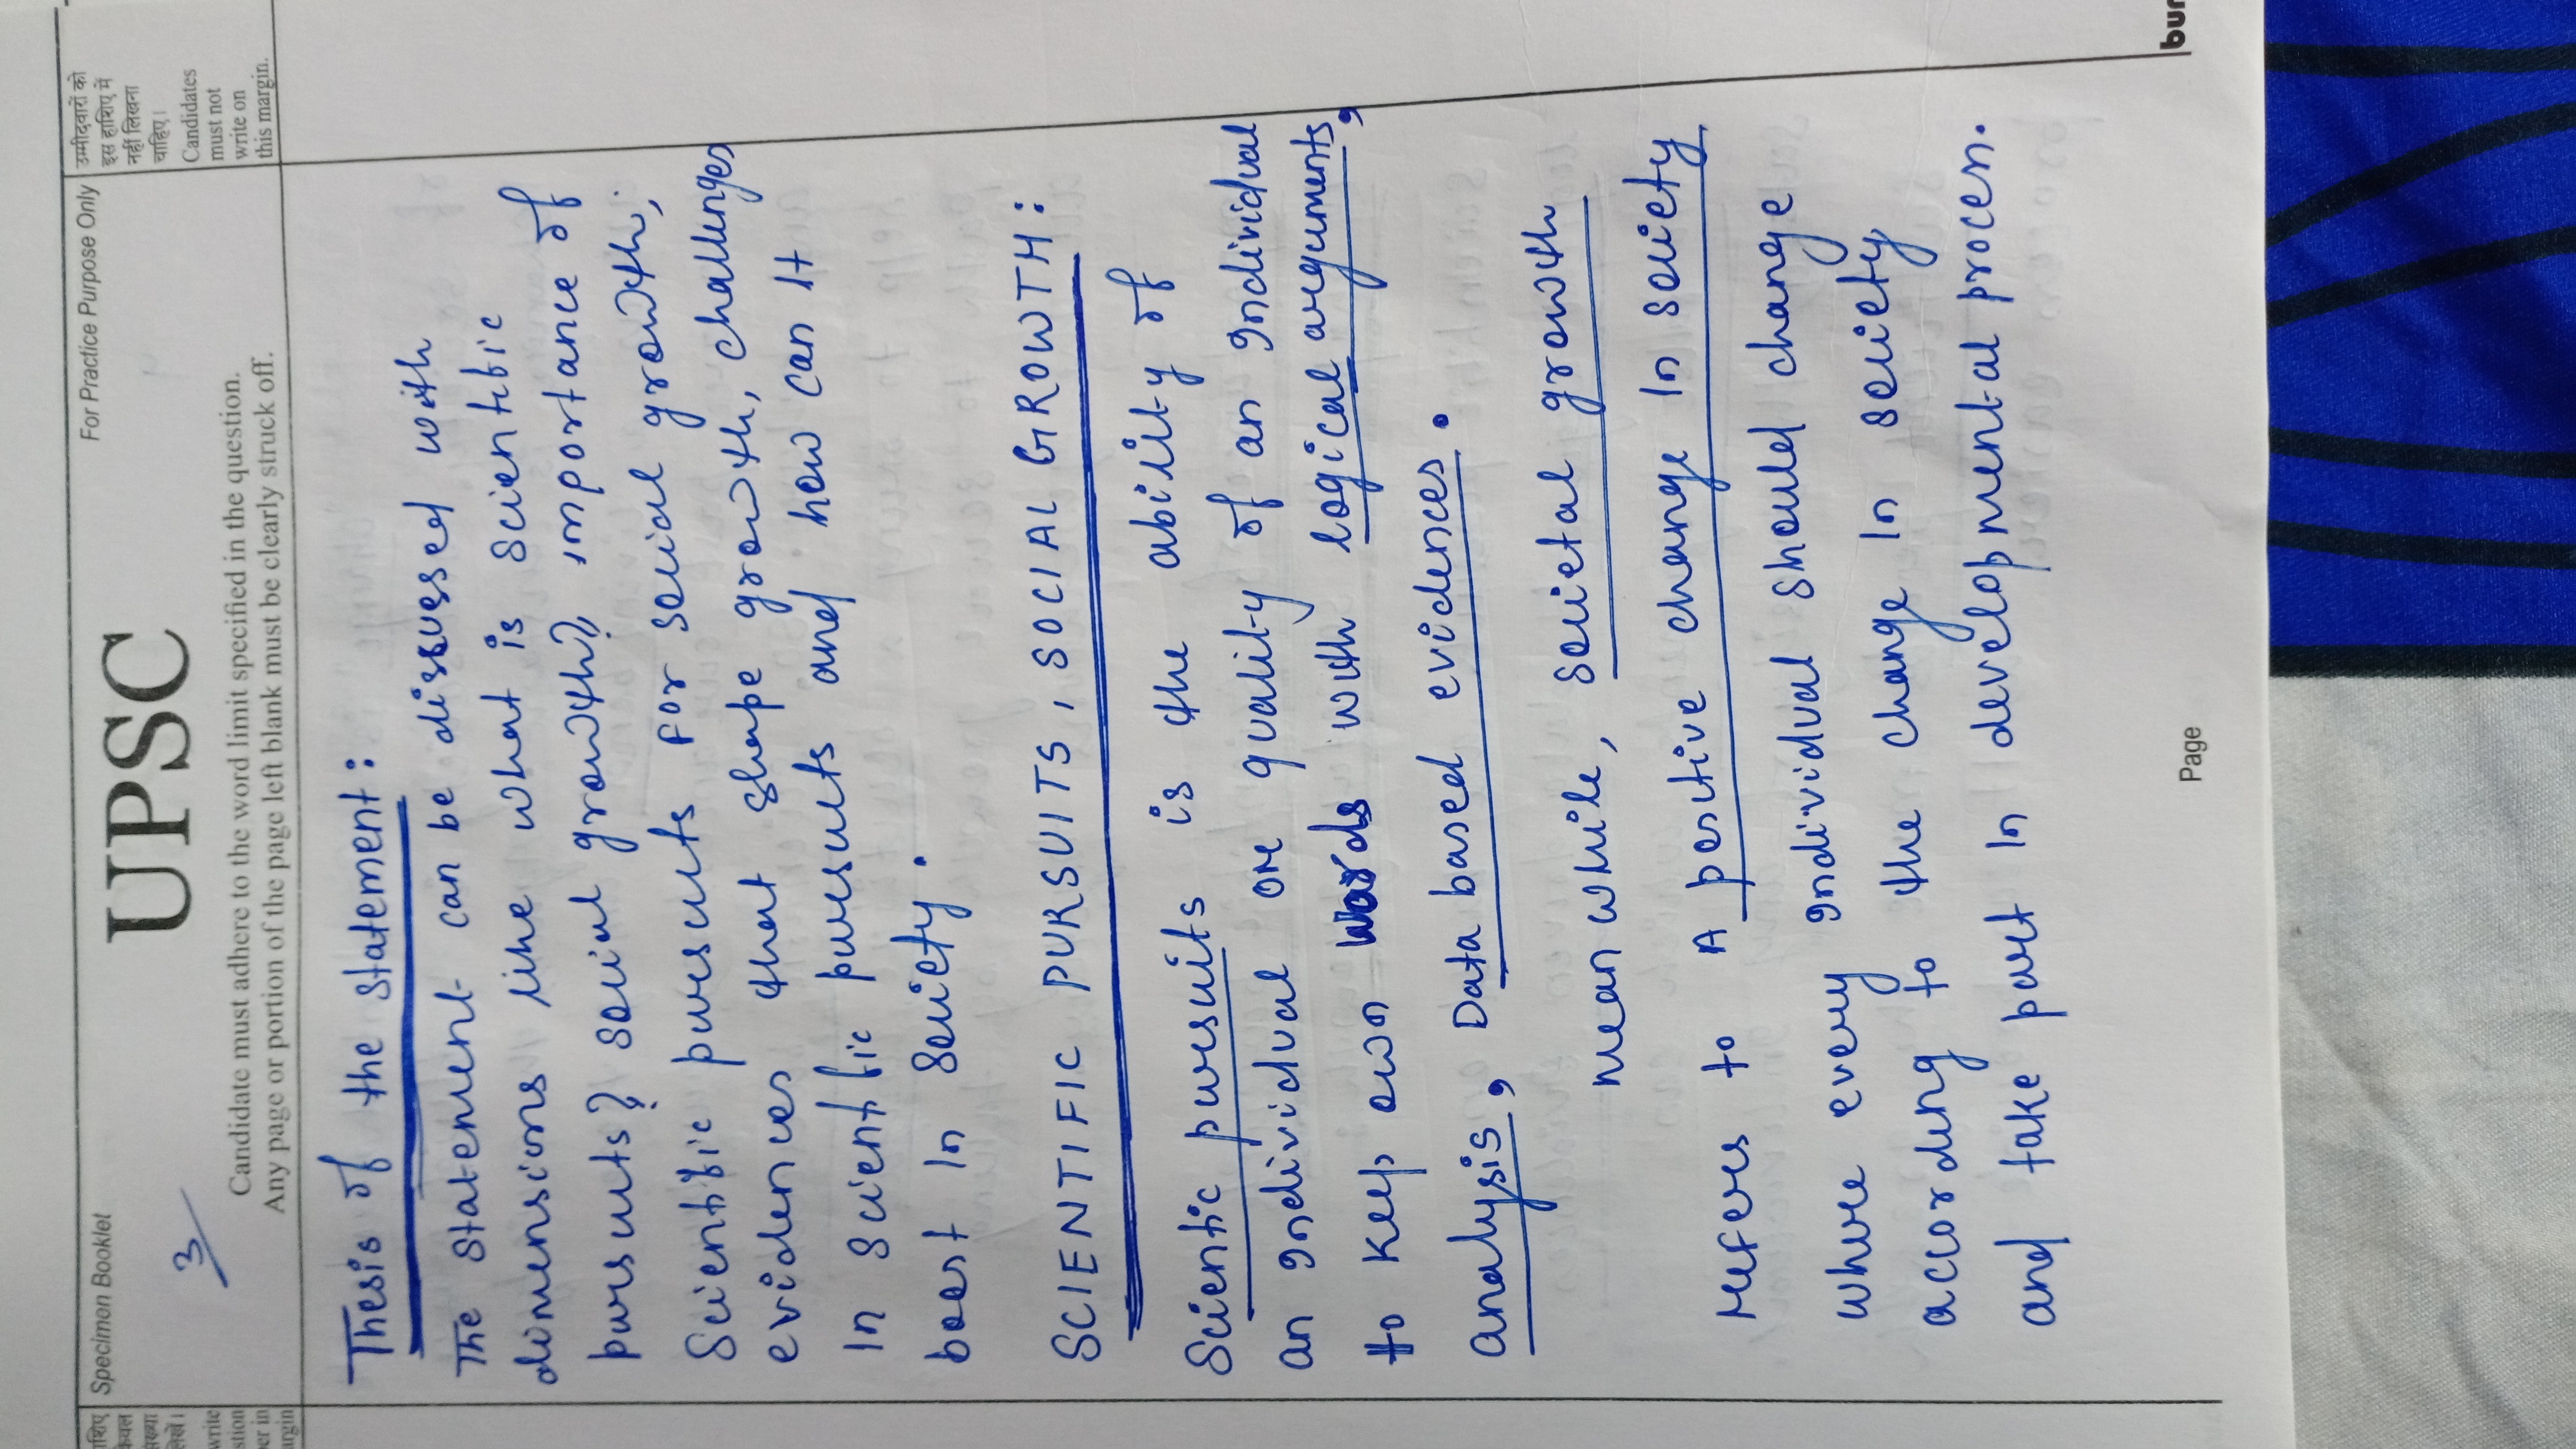 Specimen Booklet
For Practice Purpose Only
UPSC
3
Candidate must adhere to the word limit specified in the question.
Any page or portion of the page left blank must be clearly struck off.
उम्मीदवारों को
इस हाशिए में
नहीं लिखना
चाहिए।
Candidates
must not
write on
this margin.
Thesis of the statement:
The statement can be disussed with
dimensions like what is scientific
pursuits? social growth?, importance of
Scientific pursuits for social growth,
evidences that shape growth, challenges
In scientific pursuits and how can It
boost In society.
SCIENTIFIC PURSUITS, SOCIAL GROWTH:
Scientic pursuits is the ability of
an Individual or quality of an Individual
to keep own words with logical arguments,
analysis, Data based evidences.
mean while, societal growth
refers to A positive change In society
where every Individual should change
according to the change In society
and take part In developmental process.
Page